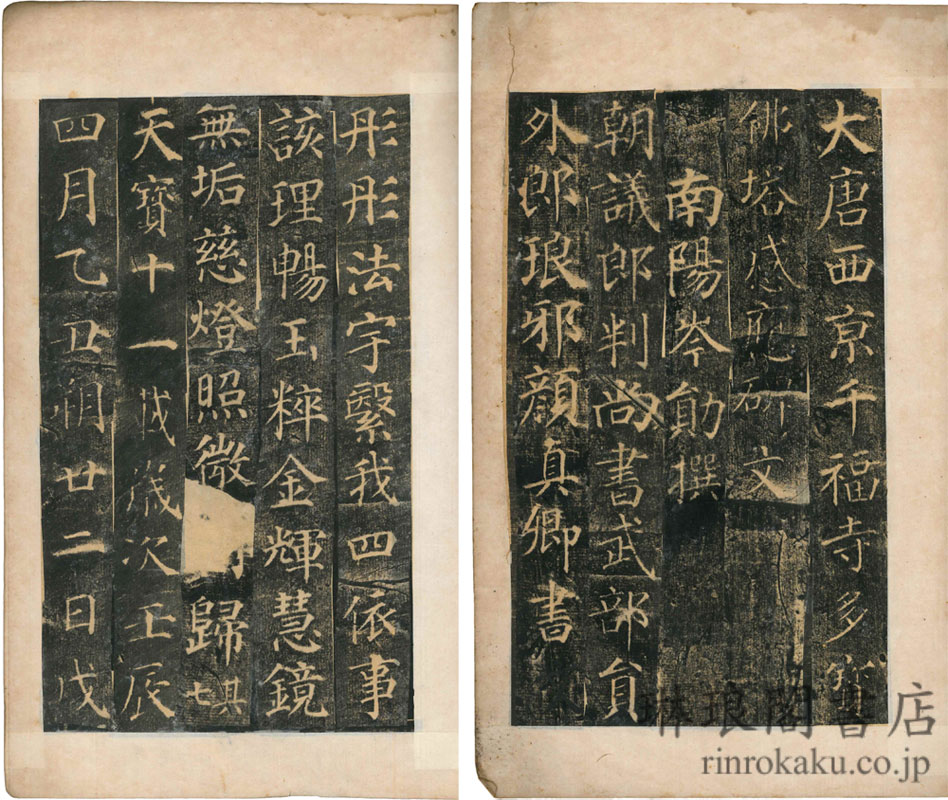 大唐西京千福寺多寶
佛塔感應碑文
南陽岑勛撰
朝議郎判尚書武部員
外郎琅邪顏真卿書
彤彤法宇繄我四依事
該理暢玉粹金輝慧鏡
無垢慈燈照微歸其七
天寶十一載歲次壬辰
四月乙丑朔廿二日戊
琳琅閣書店
rinrokaku.co.jp